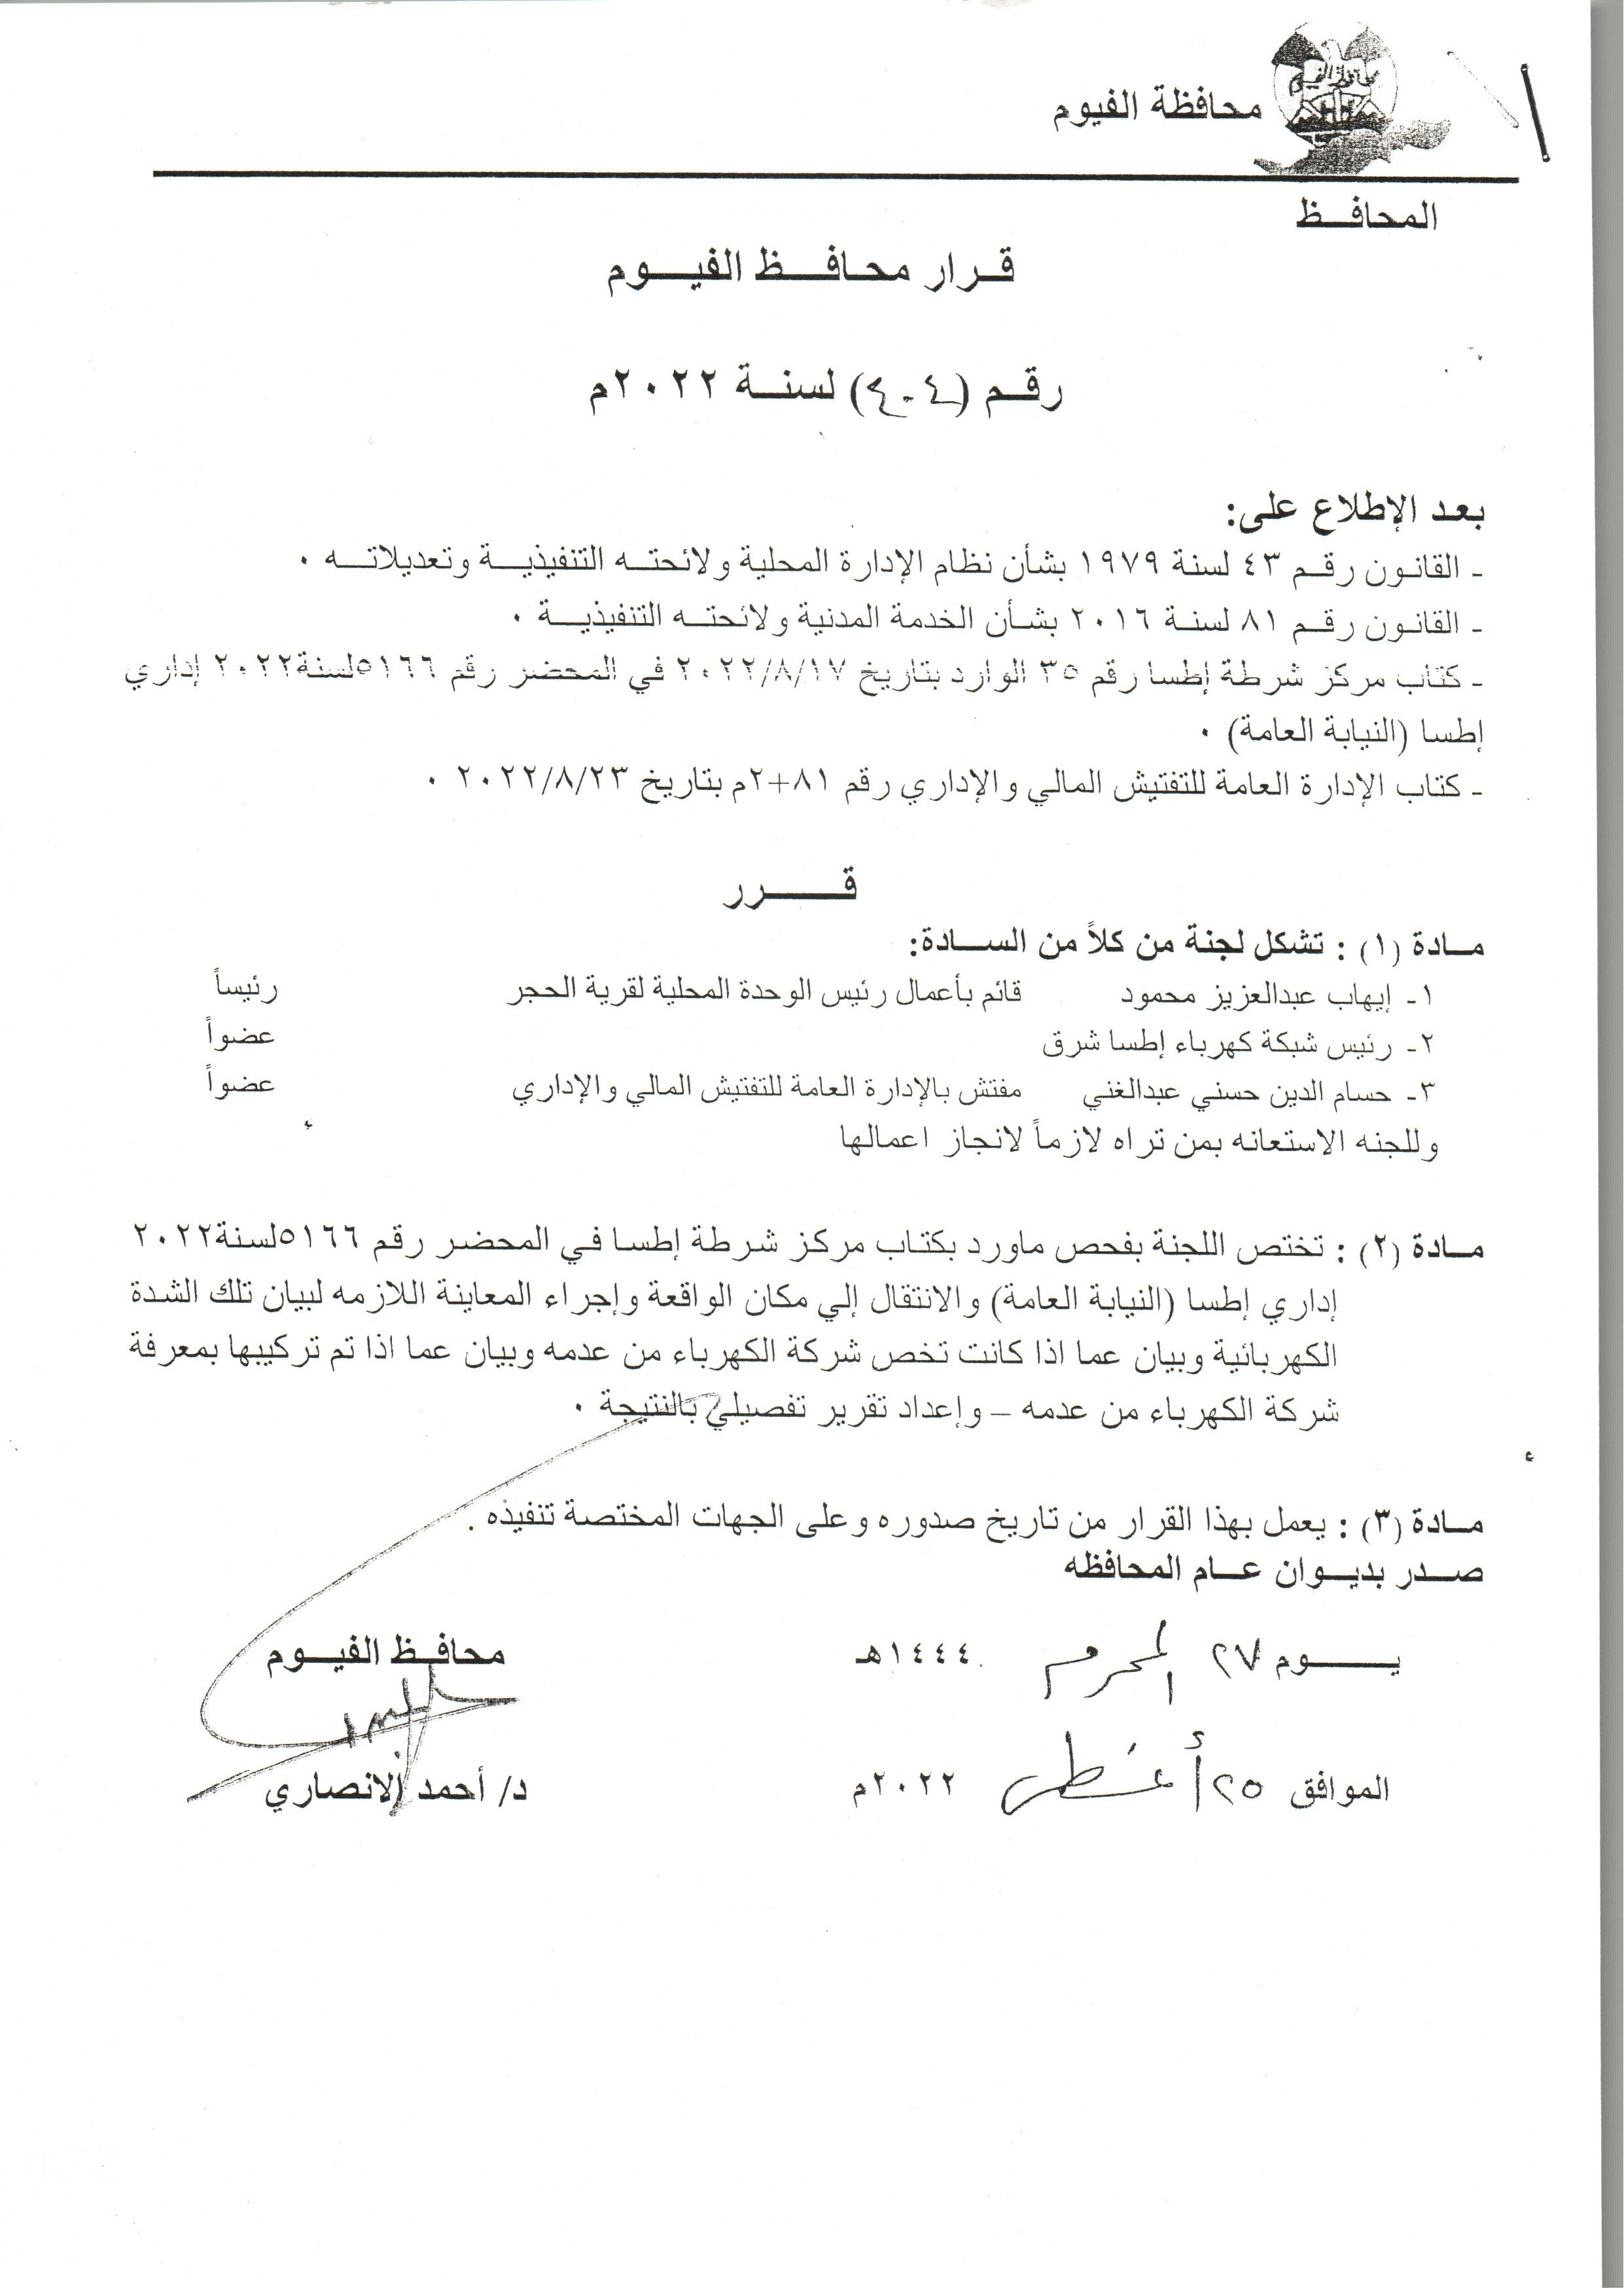 محافظة الفيوم
محافظة الفيوم
المحافظ
قرار محافظ الفيوم
رقم (٤٠٤) لسنة ٢٠٢٢م
بعد الإطلاع على:
- القانون رقم ٤٣ لسنة ١٩٧٩ بشأن نظام الإدارة المحلية ولائحته التنفيذية وتعديلاته ٠
- القانون رقم ٨١ لسنة ٢٠١٦ بشأن الخدمة المدنية ولائحته التنفيذية ٠
- كتاب مركز شرطة إطسا رقم ٣٥ الوارد بتاريخ ٢٠٢٢/٨/١٧ في المحضر رقم ٥١٦٦لسنة٢٠٢٢ إداري
إطسا (النيابة العامة) ٠
- كتاب الإدارة العامة للتفتيش المالي والإداري رقم ٨١+٢م بتاريخ ٢٠٢٢/٨/٢٣ ٠
قرر
مادة (١) : تشكل لجنة من كلاً من السادة:
١- إيهاب عبدالعزيز محمود قائم بأعمال رئيس الوحدة المحلية لقرية الحجر رئيساً
٢- رئيس شبكة كهرباء إطسا شرق عضواً
٣- حسام الدين حسني عبدالغني مفتش بالإدارة العامة للتفتيش المالي والإداري عضواً
وللجنه الاستعانه بمن تراه لازماً لانجاز اعمالها
مادة (٢) : تختص اللجنة بفحص ماورد بكتاب مركز شرطة إطسا في المحضر رقم ٥١٦٦لسنة٢٠٢٢
إداري إطسا (النيابة العامة) والانتقال إلي مكان الواقعة وإجراء المعاينة اللازمه لبيان تلك الشدة
الكهربائية وبيان عما اذا كانت تخص شركة الكهرباء من عدمه وبيان عما اذا تم تركيبها بمعرفة
شركة الكهرباء من عدمه – وإعداد تقرير تفصيلي بالنتيجة ٠
مادة (٣) : يعمل بهذا القرار من تاريخ صدوره وعلى الجهات المختصة تنفيذه .
صدر بديوان عام المحافظه
يوم ٢٧ المحرم ١٤٤٤هـ
محافظ الفيوم
الموافق ٢٥ أغسطس ٢٠٢٢م
د/ أحمد الانصاري